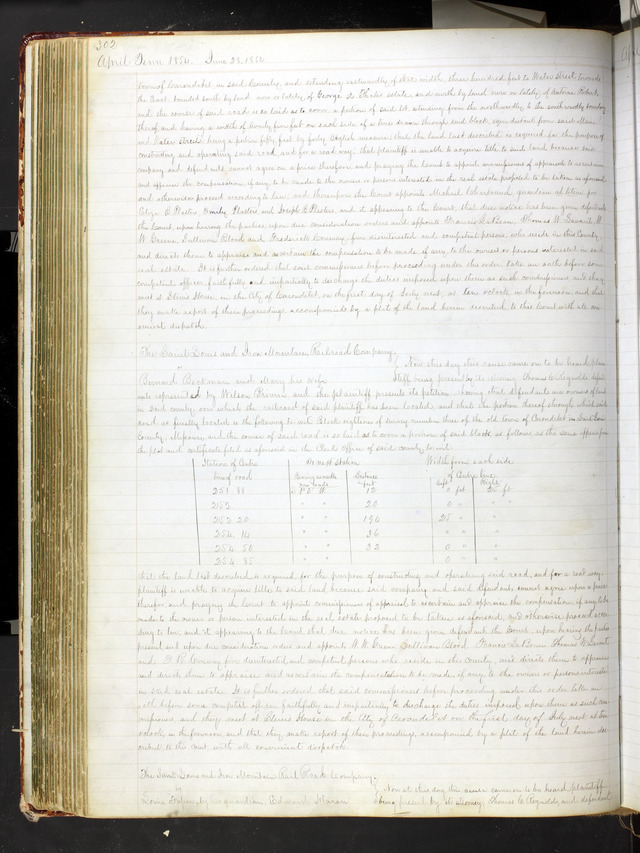 302
April Term 1856. June 23. 1856
town of Carondelet in said County, and extending eastwardly of that width, three hundred feet to Water Street, towards
the East, bounded south by land now or lately of George estate, and north by land now or lately of Antoine
and the course of said road is so laid as to cover a portion of said lot extending from the northwardly to the southwardly boundary
thereof and having a width of twenty five feet on each side of a line drawn through said block, equidistant from said Main
and Water Streets being a portion fifty feet by forty English measure; that the land last described is required for the purpose of
constructing and operating said road and for a road way; that plaintiff is unable to acquire title to said land because said
company and defendants cannot agree on a price therefor, and praying the Court to appoint commissioners of appraisal to ascertain
and appraise the compensation, if any, to be made to the owner or persons interested in the real estate proposed to be taken as aforesaid
and otherwise proceed according to law; and thereupon the Court appoints Michael guardian ad litem for
and Joseph and it appearing to the Court, that due notice has been given defendants
the Court upon hearing the parties, upon due consideration orders and appoints Francis LeBeau, Thomas W. H.
W. Greene, Sullivan Blood and Frederick five disinterested and competent persons, who reside in this County
and directs them to appraise and ascertain the compensation to be made if any, to the owner or persons interested in said
real estate. It is further ordered that said commissioners before proceeding under this order take an oath before some
competent officer, faithfully and impartially to discharge the duties imposed upon them as such commissioners and they
meet at House, in the City of Carondelet, on the first day of July next, at ten o'clock, in the forenoon, and that
they make report of their proceedings, accompanied by a plat of the land herein described to this Court with all con-
venient dispatch.
The Saint Louis and Iron Mountain Railroad Company
vs
Bernard and Mary his wife
Now at this day this cause came on to be heard, plain-
tiff being present by its attorney Thomas C. Reynolds, defend-
ants represented by Wilson Primm and the plaintiff presents its petition showing that defendants are owners of land
in said county over which the railroad of said plaintiff has been located, and that the portion thereof through which said
road is finally located is the following to wit: Block eighteen of Survey number three of the old town of Carondelet in Saint Louis
County, Missouri, and the course of said road is so laid as to cover a portion of said block as follows, as the same appears from
the plat and certificate filed as aforesaid in the Clerks office of said county to wit:
Station of Centre line of road | To next Station | Width from each side of Centre line
Bearing | Distance feet | Left | Right
251 88 | 12 | 0 feet | 25 ft
252 | " " | 20 | 0 " | "
252 20 | " " | 190 | 25 " | "
254 14 | " " | 36 | "
254 50 | " " | 32 | 0 " | "
254 85 | " " | 0 " | "
that the land last described is required, for the purpose of constructing and operating said road, and for a road way;
plaintiff is unable to acquire title to said land because said company and said defendants cannot agree upon a price
therefor, and praying the Court to appoint commissioners of appraisal to ascertain and appraise the compensation, if any, to be
made to the owner or persons interested in the real estate proposed to be taken as aforesaid, and otherwise proceed accor-
ding to law, and it appearing to the Court that due notice has been given defendant the Court, upon hearing the parties
present and upon due consideration orders and appoints H. W. Greene Sullivan Blood Francis LeBeau Thomas W.
and five disinterested and competent persons who reside in this county, and directs them to appraise
and directs them to appraise and ascertain the compensation to be made, if any, to the owner or persons interested
in said real estate. It is further ordered that said commissioners before proceeding under this order take an
oath before some competent officer, faithfully and impartially to discharge the duties imposed upon them as such com-
missioners, and they meet at House in the City of Carondelet on the first day of July next at ten
o'clock in the forenoon and that they make report of their proceedings, accompanied by a plat of the land herein des-
cribed to this Court with all convenient dispatch.
The Saint Louis and Iron Mountain Rail Road Company.
vs
Louis by his guardian, Edward Haren
Now at this day this cause came on to be heard, plaintiff
being present by its attorney, Thomas C. Reynolds, and defendant